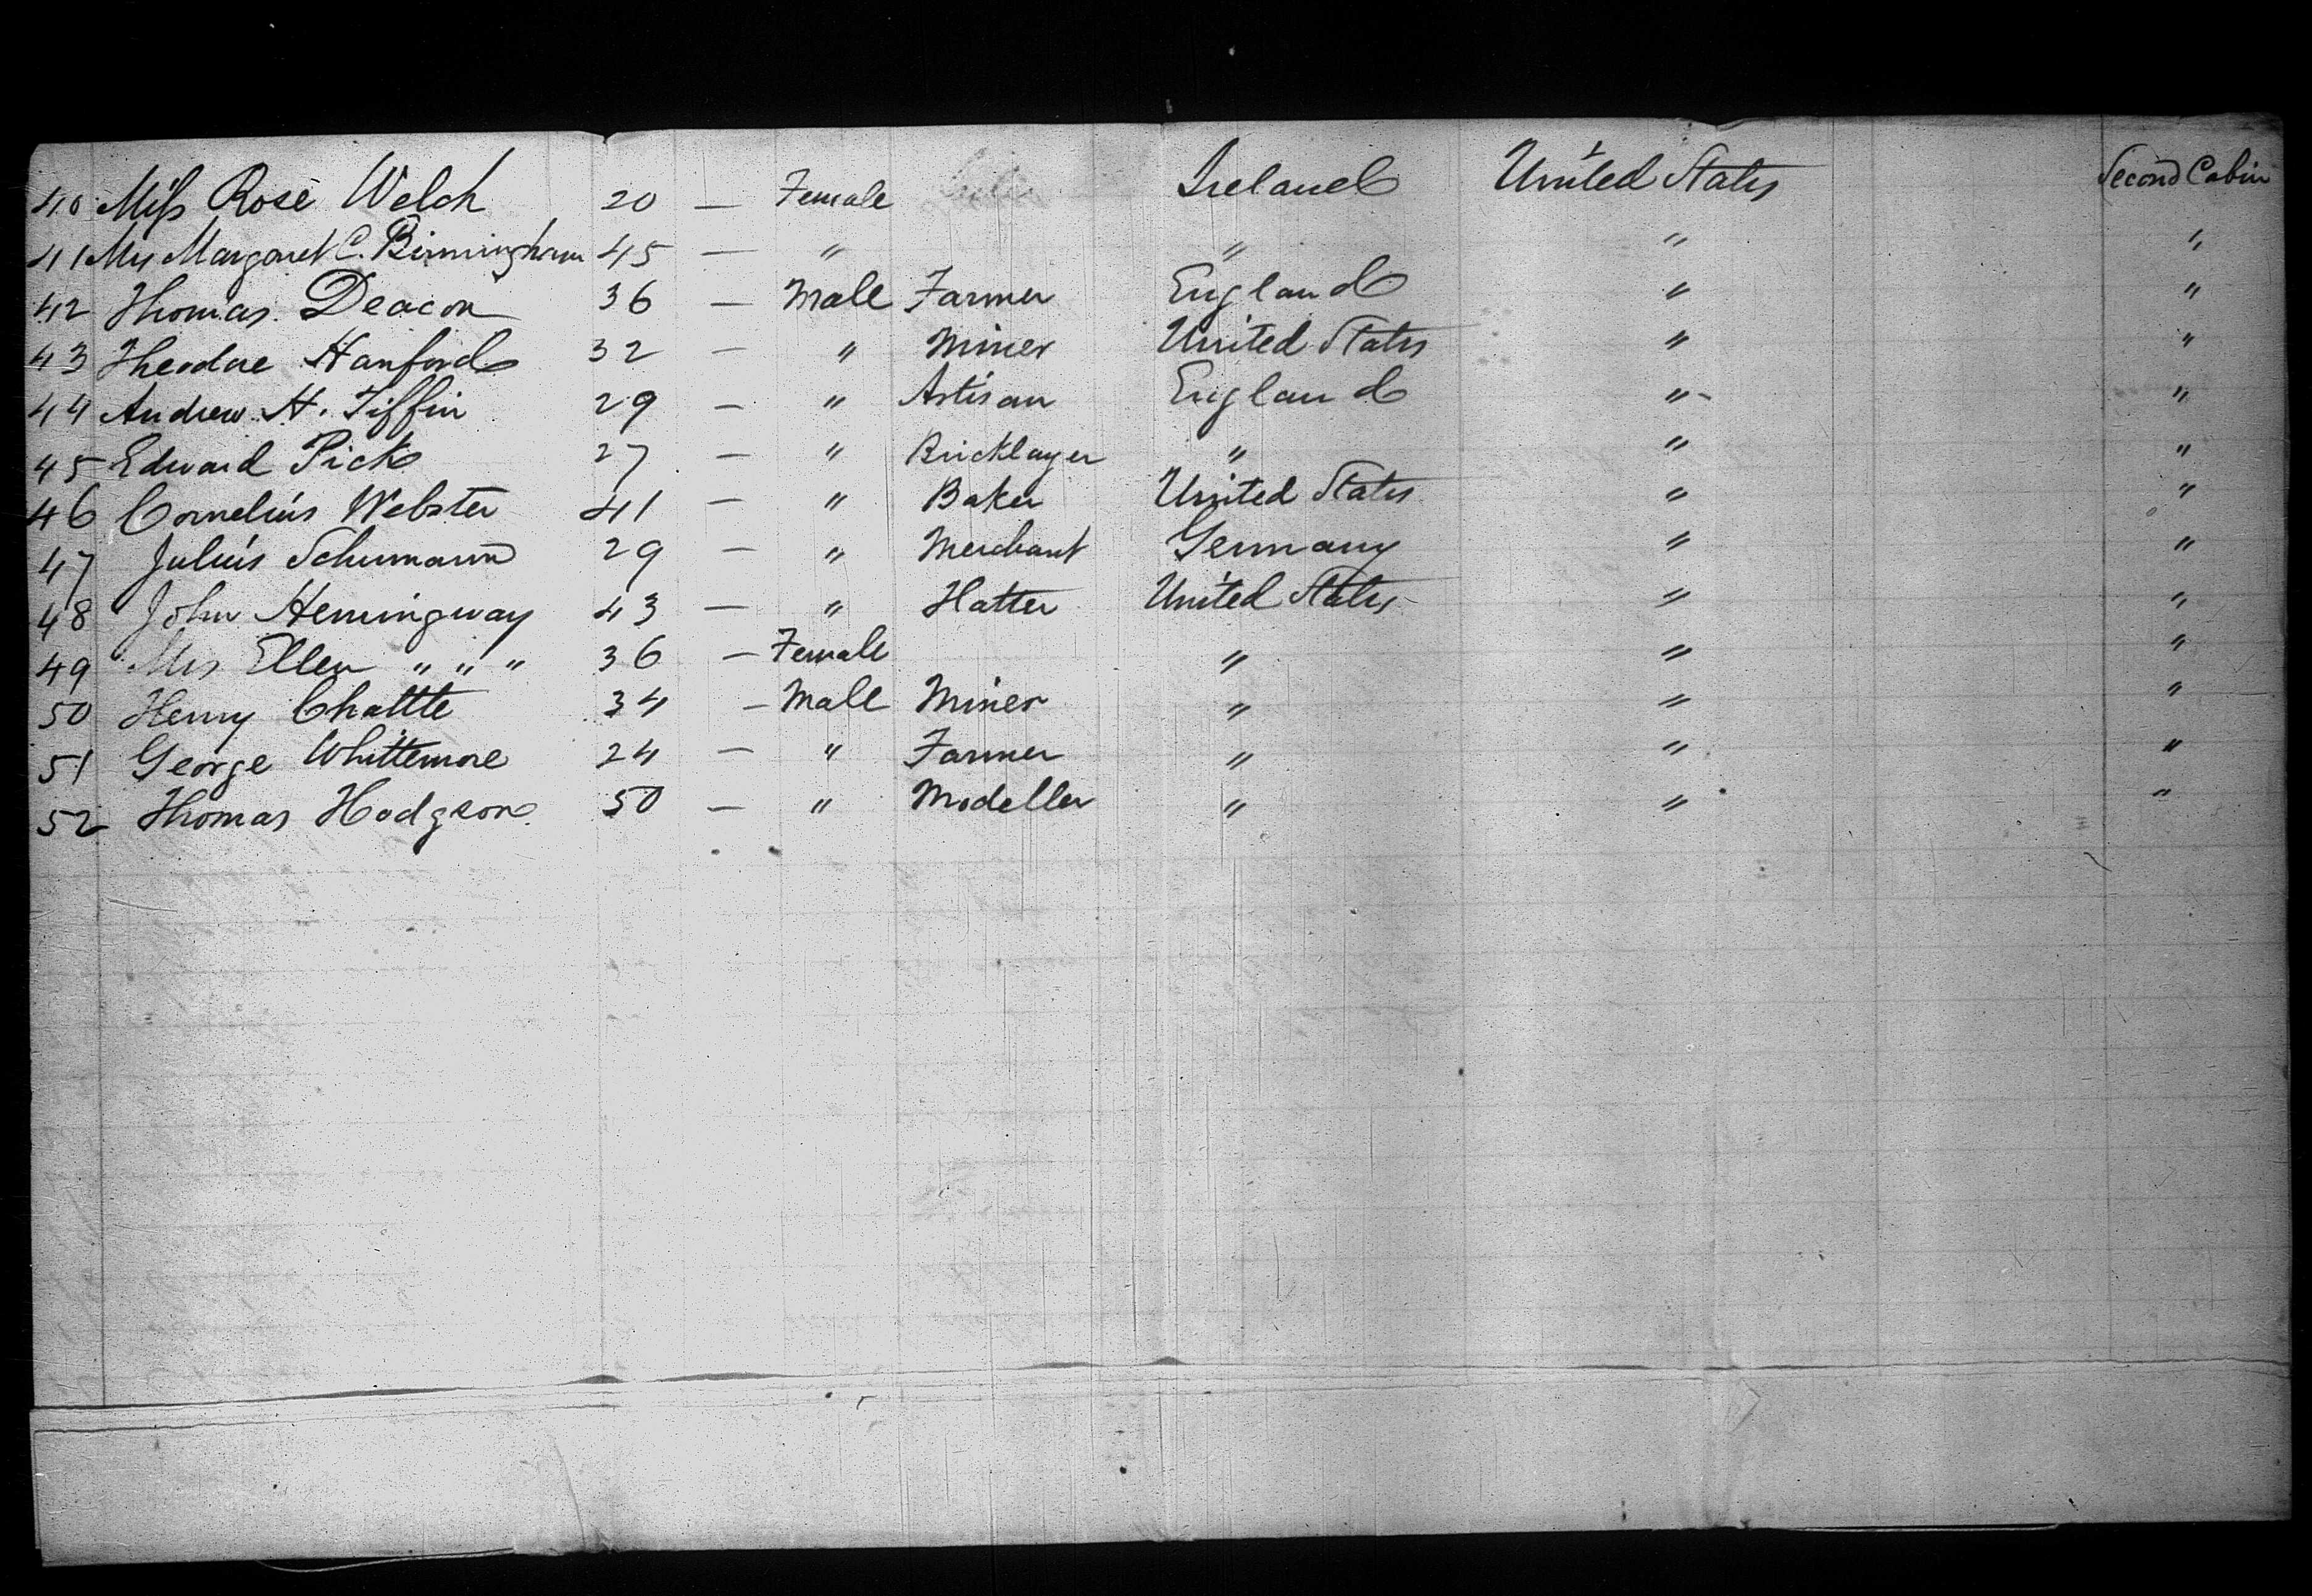 40 Miss Rose Welch 20 — Female Ireland United States Second Cabin
41 Mrs Margaret C. Birmingham 45 — " " " "
42 Thomas Deacon 36 — Male Farmer England " "
43 Theodore Hanford 32 — " Miner United States " "
44 Andrew H. Tiffin 29 — " Artisan England " "
45 Edward Pick 27 — " Bricklayer " " "
46 Cornelius Webster 41 — " Baker United States " "
47 Julius Schumann 29 — " Merchant Germany " "
48 John Hemingway 43 — " Hatter United States " "
49 Mrs Ellen " " " 36 — Female " " "
50 Henry Chattle 34 — Male Miner " " "
51 George Whittemore 24 — " Farmer " " "
52 Thomas Hodgson 50 — " Modeller " " "